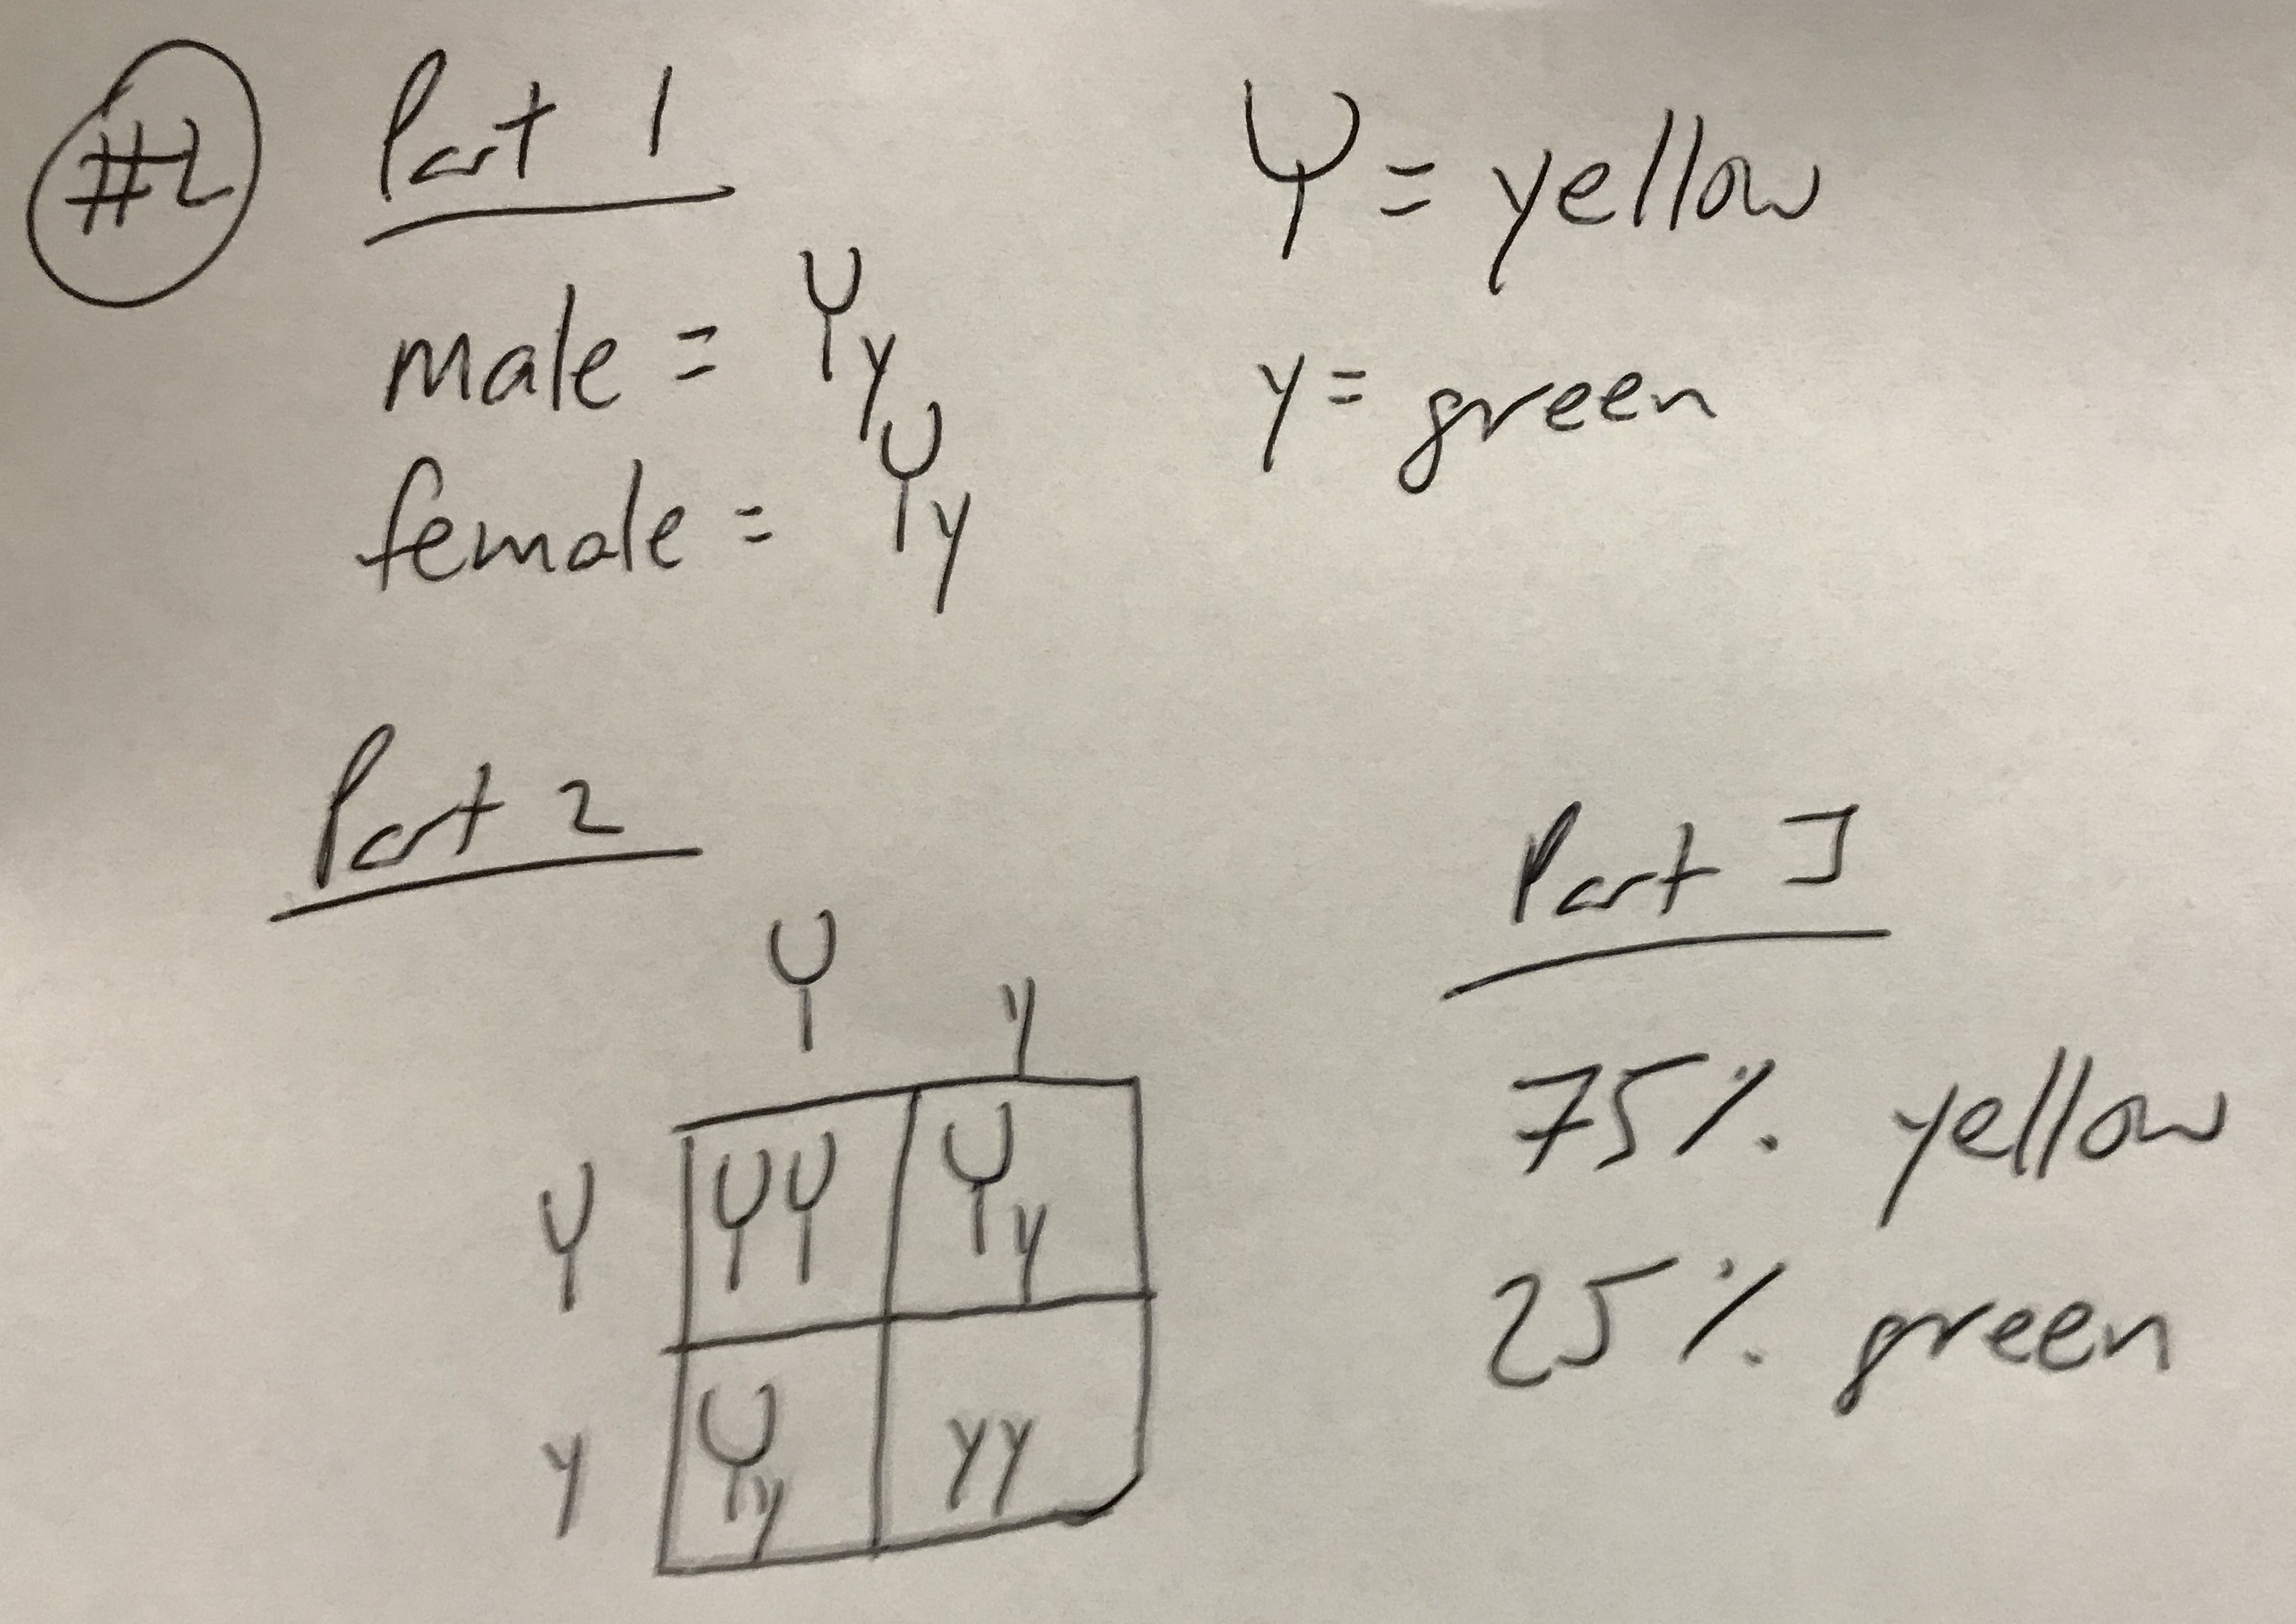 #2
Part 1
Y = yellow
male = Yy
y = green
female = Yy
Part 2
Part 3
Y y
Y YY Yy
y Yy yy
75% yellow
25% green